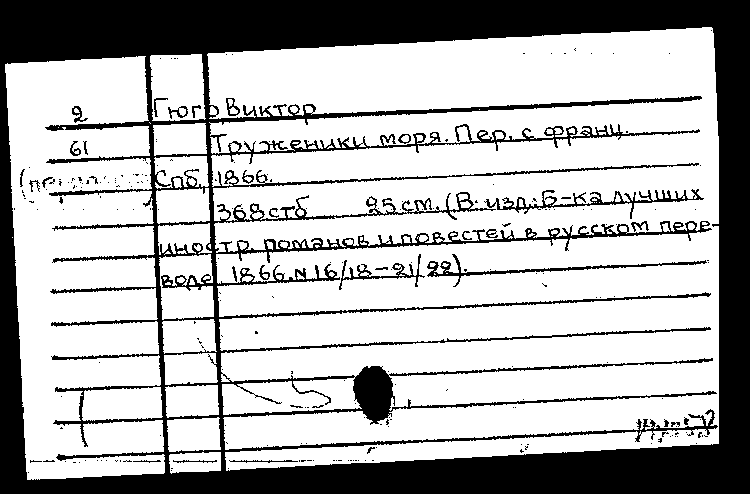 2 Гюго, Виктор
61 Труженики моря. Пер. с франц.
Спб, 1866.
368стб 25 см. (В изд.: Б-ка лучших
иностр. романов и повестей в русском пере-
воде 1866. N 16/18-21/22).